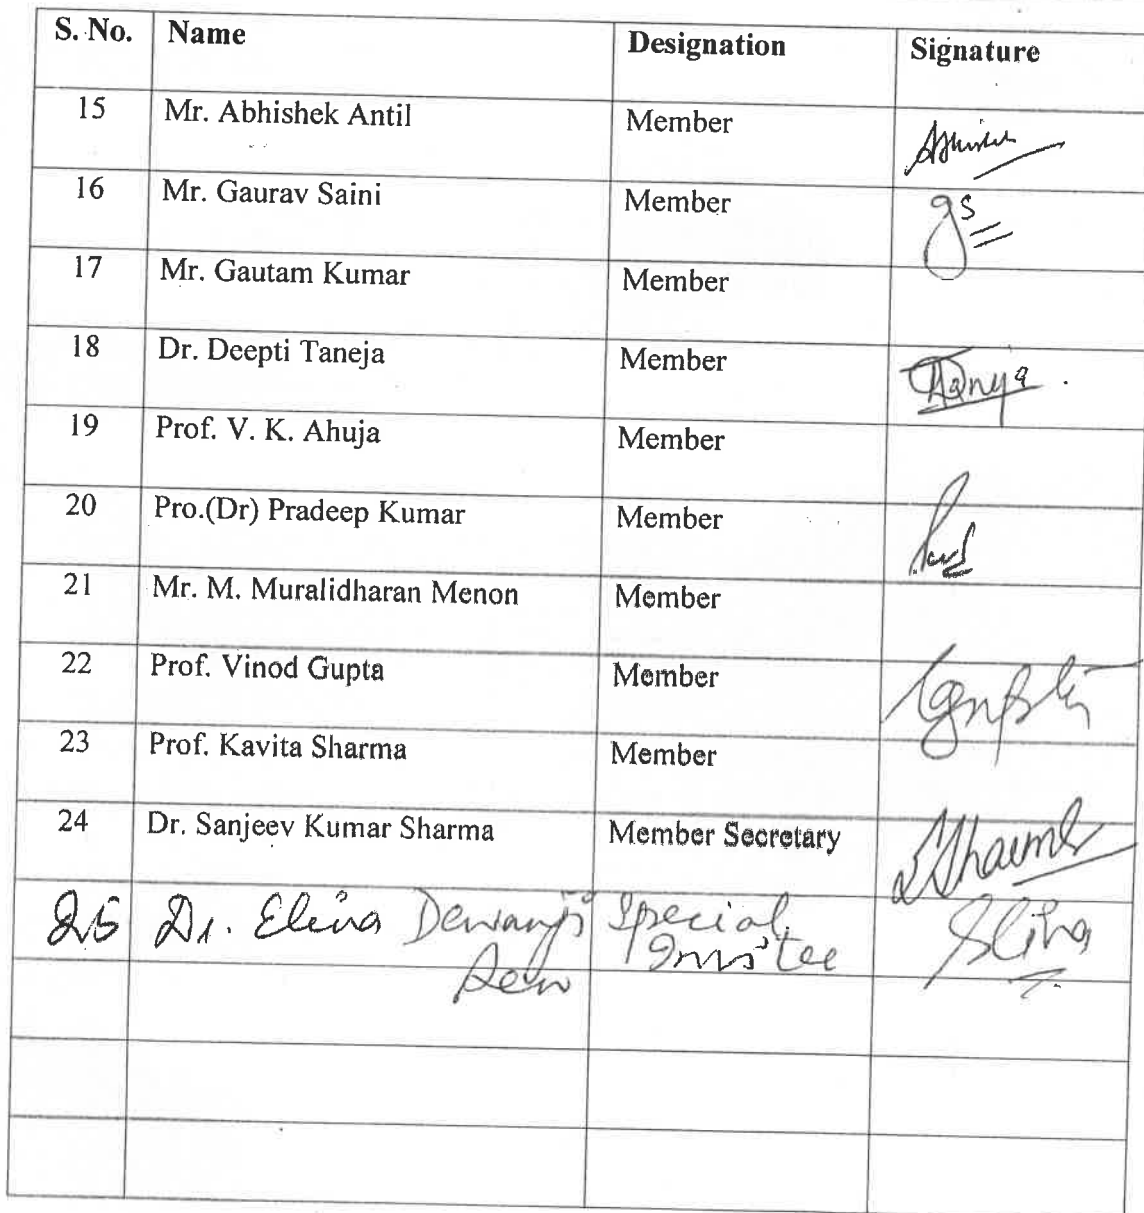 S. No. Name Designation Signature
15 Mr. Abhishek Antil Member Abhishek
16 Mr. Gaurav Saini Member gs
17 Mr. Gautam Kumar Member
18 Dr. Deepti Taneja Member
19 Prof. V. K. Ahuja Member
20 Pro.(Dr) Pradeep Kumar Member
21 Mr. M. Muralidharan Menon Member
22 Prof. Vinod Gupta Member Gupta
23 Prof. Kavita Sharma Member
24 Dr. Sanjeev Kumar Sharma Member Secretary Sharma
25 Dr. Elina Dewanji Special Elina
Sen Invitee